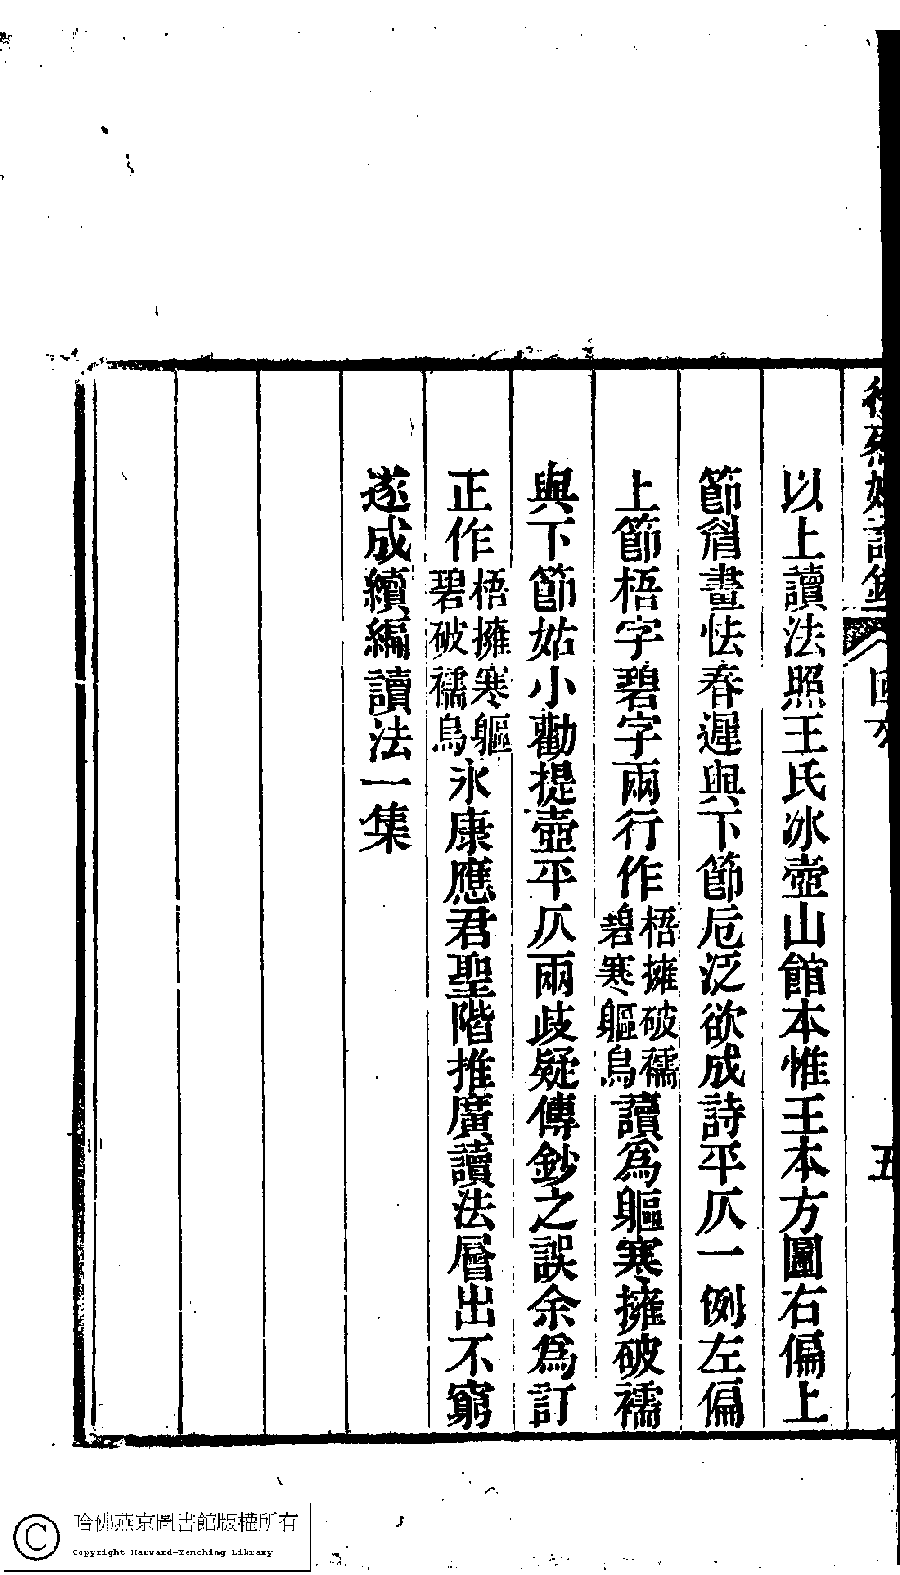 徐烈婦詩鈔 回文 五
以上讀法照王氏冰壺山館本惟王本方圖右偏上
節睂畫怯春遲與下節卮泛欲成詩平仄一例左偏
上節梧字碧字兩行作梧擁破襦碧寒軀烏讀為軀寒擁破襦
與下節姑小勸提壺平仄兩歧疑傳鈔之誤余為訂
正作梧擁寒軀碧破襦烏永康應君聖階推廣讀法層出不窮
遂成續編讀法一集
哈佛燕京圖書館版權所有
Copyright Harvard-Yenching Library